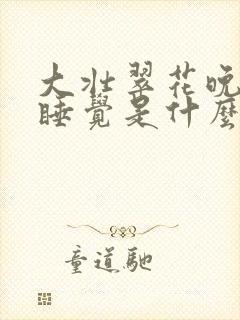 大壯翠花晚
睡覺是什麼
童道馳